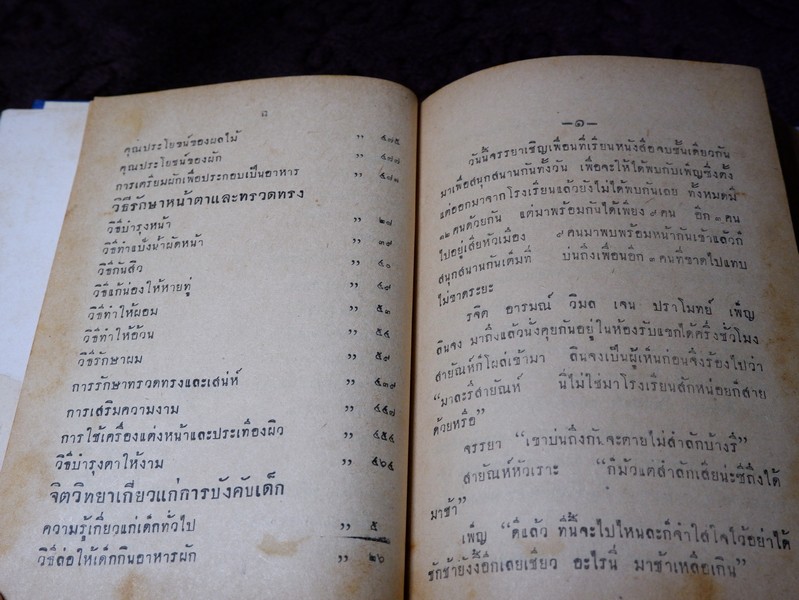 ๘
คุณประโยชน์ของผลไม้ ,, ๔๗๕
คุณประโยชน์ของผัก ,, ๔๗๗
การเตรียมผักเพื่อประกอบเป็นอาหาร ,, ๔๗๘
วิธีรักษาหน้าตาและทรวดทรง
วิธีบำรุงหน้า ,, ๒๗
วิธีทำแป้งน้ำผัดหน้า ,, ๓๙
วิธีกันสิว ,, ๔๐
วิธีแก้น่องให้หายทู่ ,, ๔๙
วิธีทำให้ผอม ,, ๕๓
วิธีทำให้อ้วน ,, ๕๔
วิธีรักษาผม ,, ๕๙
การรักษาทรวดทรงและเสน่ห์ ,, ๔๓๙
การเสริมความงาม ,, ๔๔๗
การใช้เครื่องแต่งหน้าและประเทืองผิว ,, ๔๕๔
วิธีบำรุงตาให้งาม ,, ๔๖๔
จิตวิทยาเกี่ยวแก่การบังคับเด็ก
ความรู้เกี่ยวแก่เด็กทั่วไป ,, ๕
วิธีล่อให้เด็กกินอาหารผัก ,, ๒๖
—๑—
วันนี้จรรยาเชิญเพื่อนที่เรียนหนังสือจบชั้นเดียวกัน
มาเพื่อสนุกสนานกันทั้งวัน เพื่อจะให้ได้พบกับเพ็ญซึ่งตั้ง
แต่ออกมาจากโรงเรียนแล้วยังไม่ได้พบกันเลย ทั้งหมดมี
๑๒ คนด้วยกัน แต่มาพร้อมกันได้เพียง ๙ คน อีก ๓ คน
ไปอยู่เสียหัวเมือง ๙ คนมาพบพร้อมหน้ากันเข้าแล้วก็
สนุกสนานกันเต็มที่ บ่นถึงเพื่อนอีก ๓ คนที่ขาดไปแทบ
ไม่ขาดระยะ
รจิต อารมณ์ วิมล เจน ปราโมทย์ เพ็ญ
ลินจง มาถึงแล้วนั่งคุยกันอยู่ในห้องรับแขกได้ครึ่งชั่วโมง
สายัณห์ก็โผล่เข้ามา ลินจงเป็นผู้เห็นก่อนจึงร้องไปว่า
“มาละรึสายัณห์ นี่ไม่ใช่มาโรงเรียนสักหน่อยก็สาย
ด้วยหรือ”
จรรยา “เขาบ่นถึงกันจะตายไม่สำลักบ้างรึ”
สายัณห์หัวเราะ “ก็มัวแต่สำลักเสียน่ะซีถึงได้
มาช้า”
เพ็ญ “ดีแล้ว ทีนี้จะไปไหนละก็จำใส่ใจไว้อย่าได้
ชักช้ายังงี้อีกเลยเชียว อะไรนี่ มาช้าเหลือเกิน”